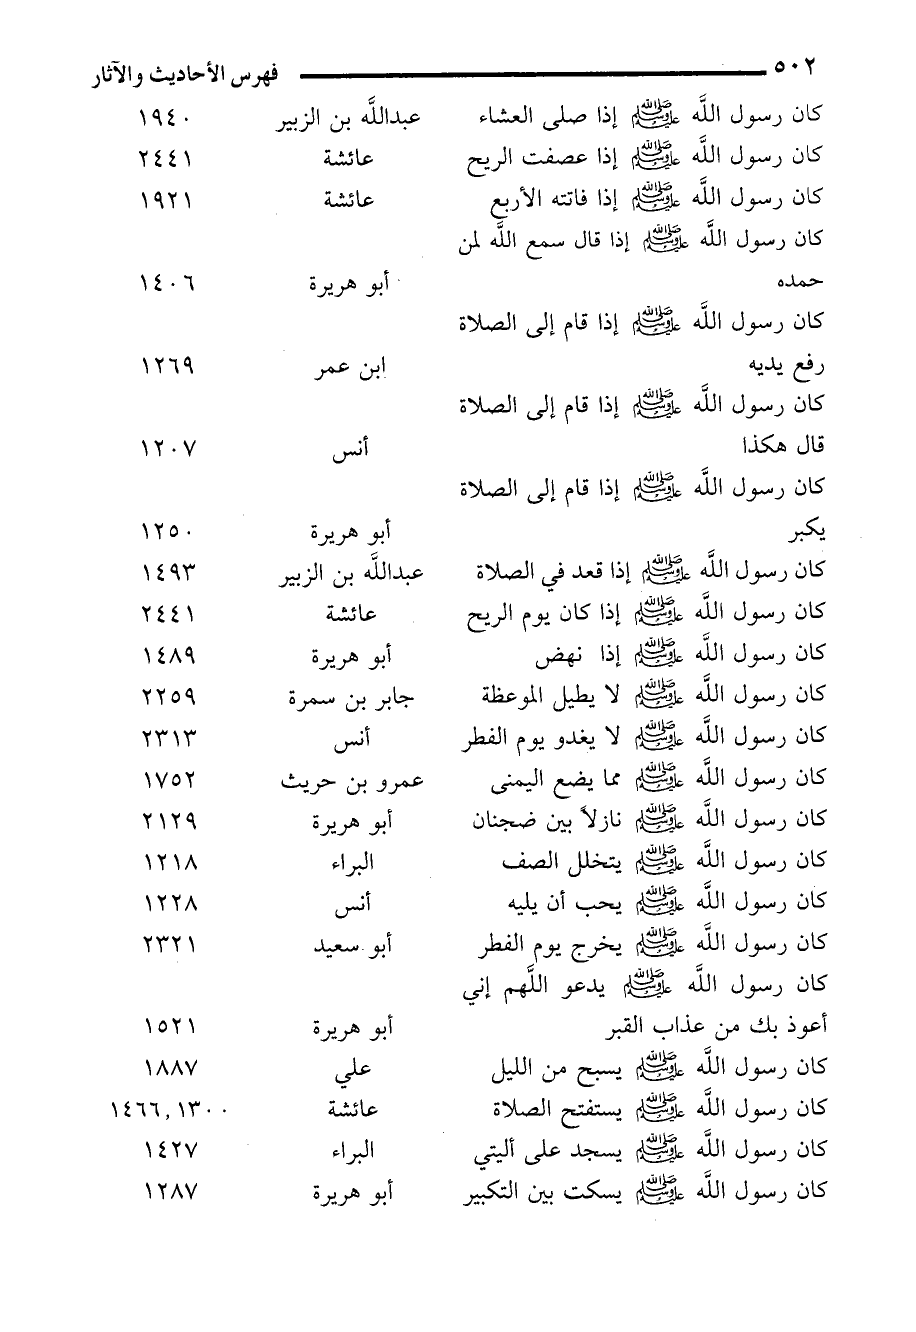 ٥٠٢ فهرس الأحاديث والآثار
كان رسول اللَّه ﷺ إذا صلى العشاء عبداللَّه بن الزبير ١٩٤٠
كان رسول اللَّه ﷺ إذا عصفت الريح عائشة ٢٤٤١
كان رسول اللَّه ﷺ إذا فاتته الأربع عائشة ١٩٢١
كان رسول اللَّه ﷺ إذا قال سمع اللَّه لمن
حمده أبو هريرة ١٤٠٦
كان رسول اللَّه ﷺ إذا قام إلى الصلاة
رفع يديه ابن عمر ١٢٦٩
كان رسول اللَّه ﷺ إذا قام إلى الصلاة
قال هكذا أنس ١٢٠٧
كان رسول اللَّه ﷺ إذا قام إلى الصلاة
يكبر أبو هريرة ١٢٥٠
كان رسول اللَّه ﷺ إذا قعد في الصلاة عبداللَّه بن الزبير ١٤٩٣
كان رسول اللَّه ﷺ إذا كان يوم الريح عائشة ٢٤٤١
كان رسول اللَّه ﷺ إذا نهض أبو هريرة ١٤٨٩
كان رسول اللَّه ﷺ لا يطيل الموعظة جابر بن سمرة ٢٢٥٩
كان رسول اللَّه ﷺ لا يغدو يوم الفطر أنس ٢٣١٣
كان رسول اللَّه ﷺ مما يضع اليمنى عمرو بن حريث ١٧٥٢
كان رسول اللَّه ﷺ نازلاً بين ضجنان أبو هريرة ٢١٢٩
كان رسول اللَّه ﷺ يتخلل الصف البراء ١٢١٨
كان رسول اللَّه ﷺ يحب أن يليه أنس ١٢٢٨
كان رسول اللَّه ﷺ يخرج يوم الفطر أبو سعيد ٢٣٢١
كان رسول اللَّه ﷺ يدعو اللَّهم إني
أعوذ بك من عذاب القبر أبو هريرة ١٥٢١
كان رسول اللَّه ﷺ يسبح من الليل علي ١٨٨٧
كان رسول اللَّه ﷺ يستفتح الصلاة عائشة ١٤٦٦,١٣٠٠
كان رسول اللَّه ﷺ يسجد على أليتي البراء ١٤٢٧
كان رسول اللَّه ﷺ يسكت بين التكبير أبو هريرة ١٢٨٧